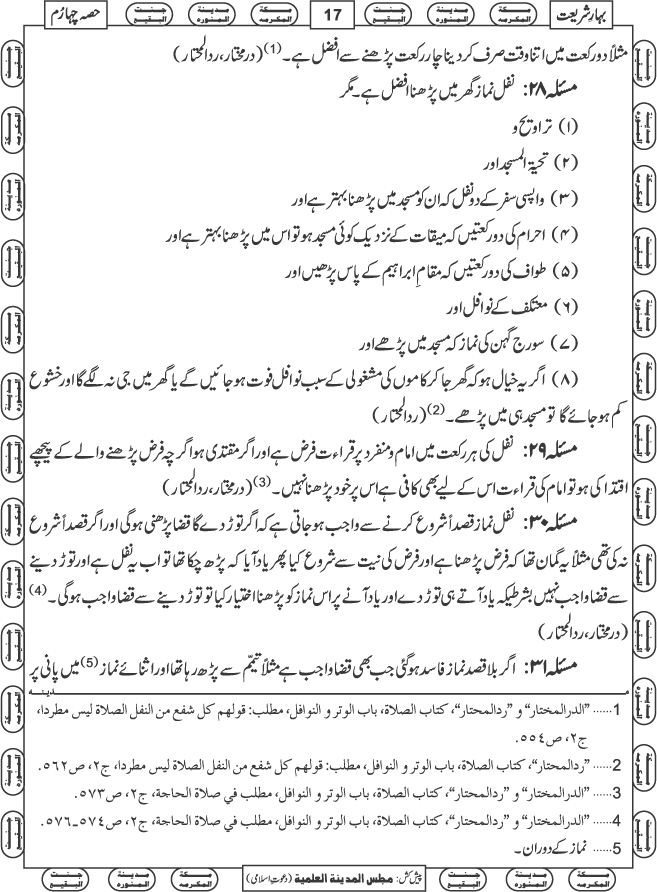 بہارِ شریعت
جنت البقیع
مدینۃ المنورہ
مکۃ المکرمہ
17
جنت البقیع
مدینۃ المنورہ
مکۃ المکرمہ
حصہ چہارم
مثلاً دو رکعت میں اتنا وقت صرف کر دینا چار رکعت پڑھنے سے افضل ہے۔(1) (درمختار، ردالمحتار)
مسئلہ ۲۸: نفل نماز گھر میں پڑھنا افضل ہے۔ مگر
(۱) تراویح و
(۲) تحیۃ المسجد اور
(۳) واپسی سفر کے دو نفل کہ ان کو مسجد میں پڑھنا بہتر ہے اور
(۴) احرام کی دو رکعتیں کہ میقات کے نزدیک کوئی مسجد ہو تو اس میں پڑھنا بہتر ہے اور
(۵) طواف کی دو رکعتیں کہ مقامِ ابراہیم کے پاس پڑھیں اور
(۶) معتکف کے نوافل اور
(۷) سورج گہن کی نماز کہ مسجد میں پڑھے اور
(۸) اگر یہ خیال ہو کہ گھر جا کر کاموں کی مشغولی کے سبب نوافل فوت ہو جائیں گے یا گھر میں جی نہ لگے گا اور خشوع
کم ہو جائے گا تو مسجد ہی میں پڑھے۔(2) (ردالمحتار)
مسئلہ ۲۹: نفل کی ہر رکعت میں امام و منفرد پر قراءت فرض ہے اور اگر مقتدی ہو اگرچہ فرض پڑھنے والے کے پیچھے
اقتدا کی ہو تو امام کی قراءت اس کے لیے بھی کافی ہے اس پر خود پڑھنا نہیں۔(3) (درمختار، ردالمحتار)
مسئلہ ۳۰: نفل نماز قصداً شروع کرنے سے واجب ہو جاتی ہے کہ اگر توڑ دے گا قضا پڑھنی ہوگی اور اگر قصداً شروع
نہ کی تھی مثلاً یہ گمان تھا کہ فرض پڑھنا ہے اور فرض کی نیت سے شروع کیا پھر یاد آیا کہ پڑھ چکا تھا تو اب یہ نفل ہے اور توڑ دینے
سے قضا واجب نہیں بشرطیکہ یاد آتے ہی توڑ دے اور یاد آنے پر اس نماز کو پڑھنا اختیار کیا تو توڑ دینے سے قضا واجب ہوگی۔(4)
(درمختار، ردالمحتار)
مسئلہ ۳۱: اگر بلا قصد نماز فاسد ہوگئی جب بھی قضا واجب ہے مثلاً تیمّم سے پڑھ رہا تھا اور اثنائے نماز(5) میں پانی پر
1...... "الدرالمختار" و "ردالمحتار"، کتاب الصلاة، باب الوتر و النوافل، مطلب: قولهم کل شفع من النفل الصلاة ليس مطردا،
ج۲، ص۵۵٤.
2...... "ردالمحتار"، کتاب الصلاة، باب الوتر و النوافل، مطلب: قولهم کل شفع من النفل الصلاة ليس مطردا، ج۲، ص٥٦۲.
3...... "الدرالمختار" و "ردالمحتار"، کتاب الصلاة، باب الوتر و النوافل، مطلب في صلاة الحاجة، ج۲، ص٥٧٣.
4...... "الدرالمختار" و "ردالمحتار"، کتاب الصلاة، باب الوتر و النوافل، مطلب في صلاة الحاجة، ج۲، ص٥٧٤ـ٥٧٦.
5...... نماز کے دوران۔
پیش کش: مجلس المدینۃ العلمیۃ (دعوتِ اسلامی)